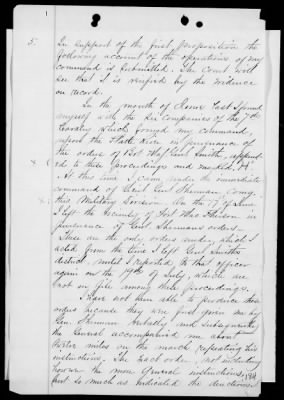 5.
In support of the first proposition the
following account of the operations of my
command is submitted. The Court will
see that it is verified by the evidence
on record.
In the month of June last I found
myself with the six companies of the 7th
Cavalry which formed my command,
upon the Platte River in pursuance of
the orders of Bvt Maj. Genl Smith, append-
ed to these proceedings and marked
At this time I came under the immediate
command of Lieut Genl Sherman, comg
this Military Division. On the 17th of June
I left the vicinity of Fort McPherson in
pursuance of Genl Sherman's orders.
These are the only orders under which I
acted from the time I left Genl Smith's
district, until I reported to that officer
again on the 19th of July, which are
not on file among these proceedings.
I have not been able to produce these
orders because they were first given me by
Gen. Sherman verbally and subsequently
the General accompanied me about
twelve miles on the march repeating his
instructions. The exact order, not including
however the more general instructions,
but so much as indicated the directions